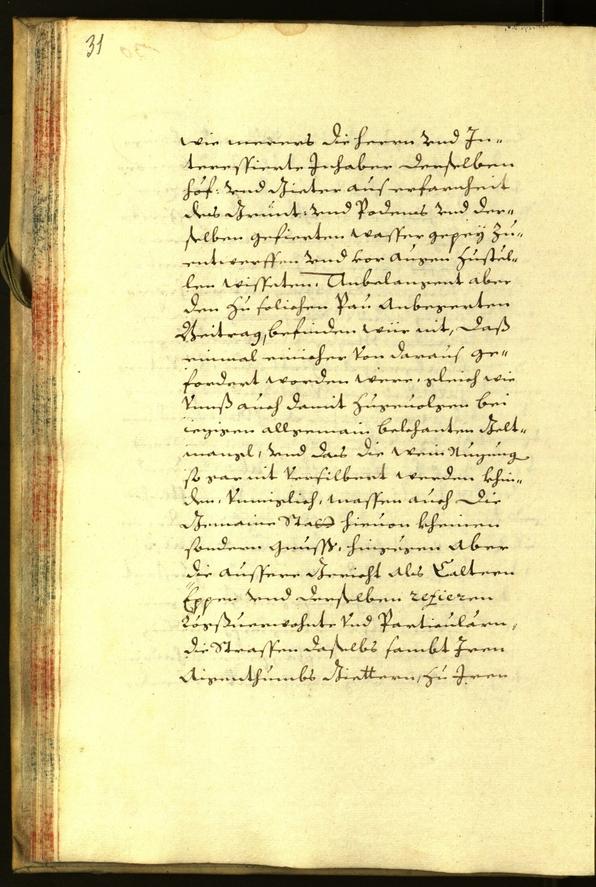 31
wie merers die herrn und In-
teressierte Inhaber derselben
höf: und Gieter aus erfarnheit
des Grundt: und Podens und der-
selben gefierten wasser gepey zu-
entwerffen und vor augen zustel-
len wissten. Anbelangent aber
den zu solichen Pau anbegerten
Beitrag, befinden wür nit, daß
einmal einicher von daraus ge-
fordert worden were, gleich wie
unnß auch damit zuzuvolgen bei
iezigen allgemain bekhanten Gelt-
mangl, und das die wein Nuzung
so gar nit versilbert werden khin-
den, unmiglich, massen auch die
Gemaine Statt hievon kheinen
sondern gnuss, hingegen aber
die aussere Gericht als Caltern
Eppen und derselben refieren
 und Particularn,
die Strassen daselbs sambt Iren
Aigenthumbs Giettern, zu Iren